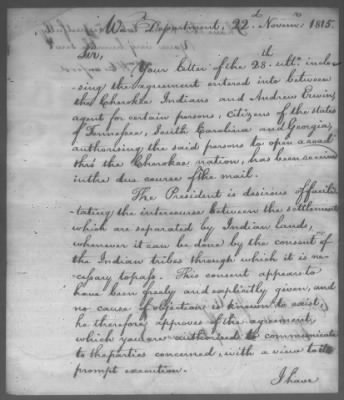 War Department, 22d Novemr 1815.
Sir,
Your letter of the 28th ulto. inclo-
sing the agreement entered into between
the Cherokee Indians and Andrew Erwin,
agent for certain persons, citizens of the states
of Tennessee, South Carolina and Georgia,
authorising the said persons to open a road
thro' the Cherokee nation, has been received
in the due course of the mail.
The President is desirous of facili-
tating the intercourse between the settlements
which are separated by Indian lands,
wherever it can be done by the consent of
the Indian tribes through which it is ne-
cessary to pass. This consent appears to
have been freely and explicitly given, and
no cause of objection is known to exist;
he therefore approves of the agreement,
which you are authorised to communicate
to the parties concerned, with a view to its
prompt execution.
I have